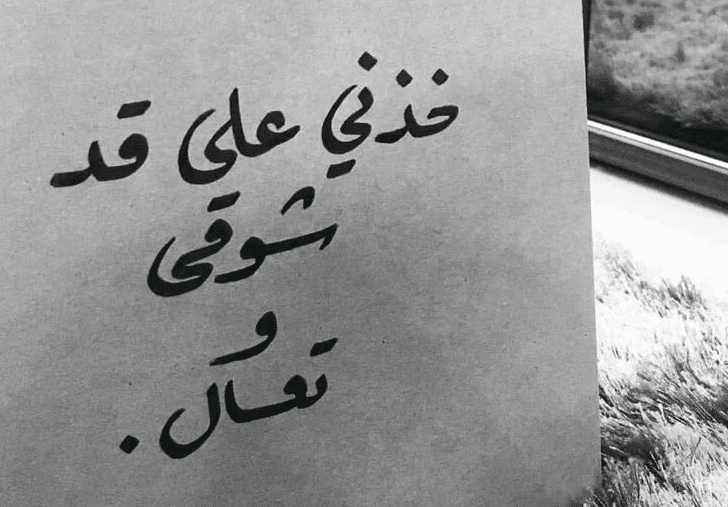 خذني على قد
شوقي
و
تعال .